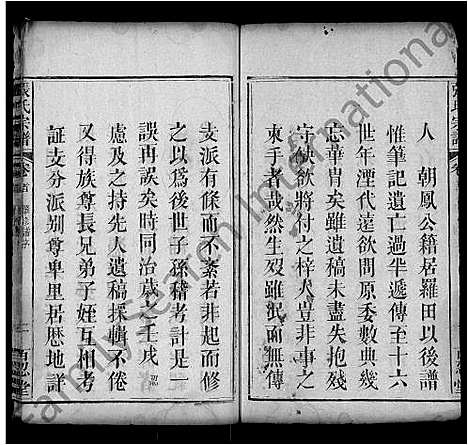 人 朝鳳公籍居羅田以後譜
惟筆記遺亡過半遞傳至十六
世年湮代遠欲問原委數典幾
忘華胄矣雖遺稿未盡失抱殘
守缺欲將付之梓人豈非事之
束手者哉然生歿雖泯而無傳
支派有條而不紊若非起而修
之以爲後世子孫稽考計一
誤再誤矣時同治歲在壬戌
慮及之持先人遺稿採輯不倦
又得族尊長兄弟子姪互相考
証支分派别尊卑里居歷地詳
張氏宗譜
卷首
張氏宗譜
Family Search International